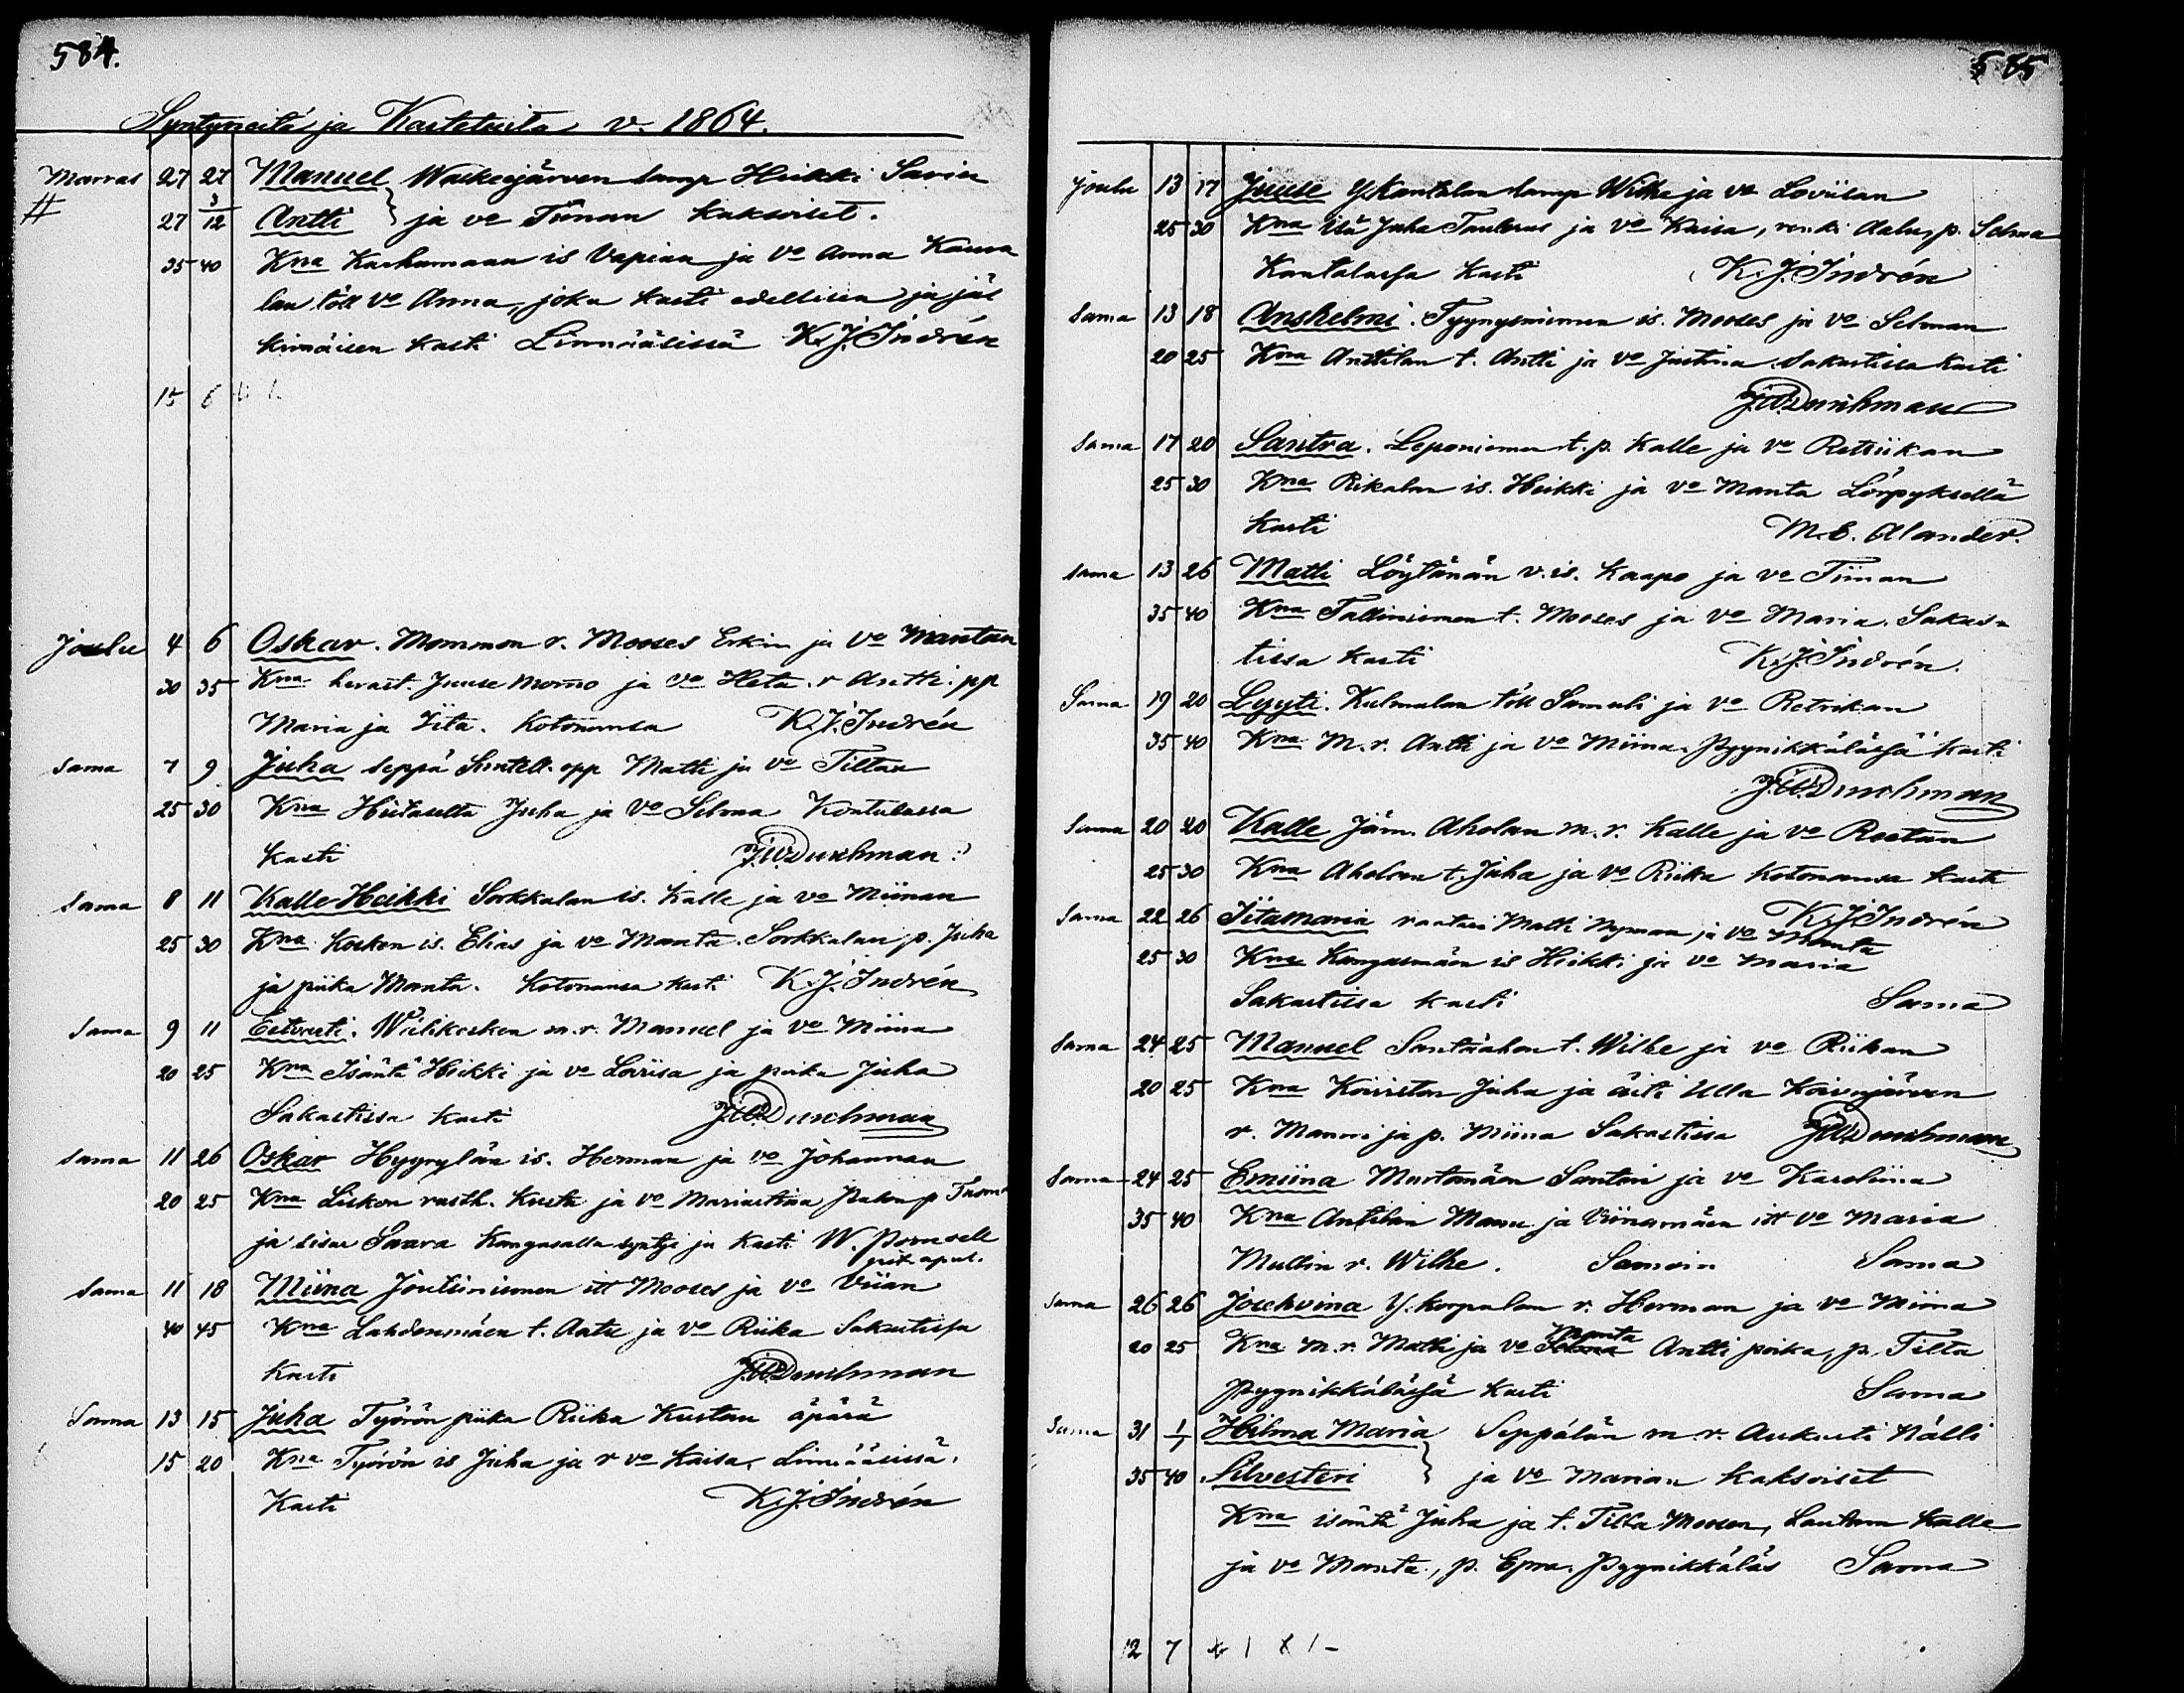 584.
Syntyneitä ja Kastetuita v. 1864.
Marras 27 27 Manuel Waskeejärven lamp Heikki Savin
# 27 3/12 Antti } ja vo Tiinan kaksoiset.
35 40 Kna Karhumaan is Vapiaa ja vo Anna
lan töll vo Anna, joka kasti edellisen ja jäl
kimäisen kasti Linnääsissä K.J. Indrén
15 6
Joulu 4 6 Oskar. Mommon r. Mooses Erkin ja vo Mantan
30 35 Kna herast. Juuse Mommo ja vo Heta. r Antti. pp
Maria ja Iita. Kotonansa K.J. Indrén
Sama 7 9 Juha seppä opp Matti ja vo Tiltan
25 30 Kna Juha ja vo Selma Kontulassa
kasti J.W. Durchman
Sama 8 11 Kalle Heikki Sorkkalan is. Kalle ja vo Miinan
25 30 Kna Kosken is. Elias ja vo Manta. Sorkkalan p. Juha
ja piika Manta. Kotonansa kasti K.J. Indrén
Sama 9 11 Eetvarti. Wälikosken m.r. Manuel ja vo Miina
20 25 Kna Isäntä Heikki ja vo Loviisa ja poika Juha
Sakastissa kasti J.W. Durchman
Sama 11 26 Oskar Hyyrylän is. Herman ja vo Johannan
20 25 Kna Liskon rusth. Kusta ja vo Mariastiina p
ja sisar Saara Kangasalla syntyi ja kasti W.
pit. apul.
Sama 11 18 Miina Joutsiniemen itt Mooses ja vo Viian
40 45 Kna Lahdenmäen t. Antti ja vo Riika Sakastissa
Kasti J.W. Durchman
Sama 13 15 Juha Työrön piika Riika Kustan äpärä
15 20 Kna Työrön is Juha ja r vo Kaisa, Linnääsissä.
Kasti K.J. Indrén
585
Joulu 13 17 Juuse Y. Kantalan lamp Wilhe ja vo Loviisan
25 30 Kna Isä Juha Taulerus ja vo Kaisa, renki Aalu, p. Selma
Kantalassa kasti K.J. Indrén
Sama 13 18 Anshelmi. Tyynyniemen is. Mooses ja vo Selman
20 25 Kna Anttilan t. Antti ja vo Justiina. Sakastissa kasti
J.W. Durchman
Sama 17 20 Santra. Leponiemen t.p. Kalle ja vo Retriikan
25 30 Kna Rikalan is. Heikki ja vo Manta Lörpyksellä
kasti M.E. Alander.
Sama 13 26 Matti Löytänän v. is. Kaapo ja vo Tiinan
35 40 Kna Talliniemen t. Mooses ja vo Maria. Sakas=
tissa kasti K.J. Indrén.
Sama 19 20 Lyyti. Kulmalan töll Samuli ja vo Retrikan
35 40 Kna M.r. Antti ja vo Miina. Pyynikkälässä kasti
J.W. Durchman
Sama 20 20 Kalle Jäm. Aholan m.r. Kalle ja vo Reetan
25 30 Kna Aholan t. Juha ja vo Riika Kotonansa kasti
K.J. Indrén
Sama 22 26 Iitamaria raatari Matti Nyman ja vo Manta
25 30 Kna Kangasmäen is Heikki ja vo Maria
Sakastissa kasti Sama
Sama 24 25 Manuel Santaahon t. Wilhe ja vo Riikan
20 25 Kna Koiviston Juha ja äiti Ulla Koivujärven
r. Manni ja p. Miina Sakastissa J.W. Durchman
Sama 24 25 Emiina Martomäen Santeri ja vo Karoliina
35 40 Kna Antilan Manu ja Viinamäen itt vo Maria
Mullin r. Wilhe. Samoin Sama
Sama 26 26 Josehvina Y. korpulan r. Herman ja vo Miina
20 25 Kna m.r. Matti ja vo Manta Antti poika, p. Tilta
Pyynikkälässä kasti Sama
Sama 31 1/1 Hilma Maria } Seppälän m.r. Aukusti Nälli
35 40 Silvesteri } ja vo Marian kaksoiset
Kna isäntä Juha ja t. Tilta Moosen, Kalle
ja vo Manta, p. Epra. Pyynikkäläs Sama
12 7